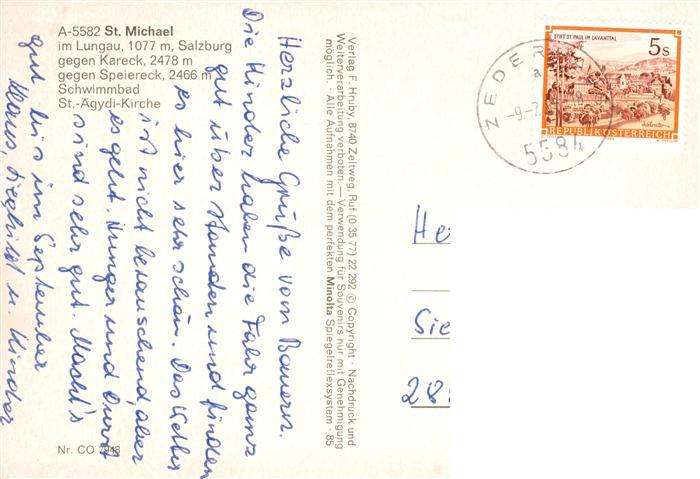 A-5582 St. Michael
im Lungau, 1077 m, Salzburg
gegen Kareck, 2478 m
gegen Speiereck, 2466 m
Schwimmbad
St.-Ägydi-Kirche
Herzliche Grüße vom Bauern.
Die Kinder haben die Fahrt ganz
gut über standen und finden
es hier sehr schön. Das Wetter
ist nicht berauschend, aber
es geht. Hunger und Durst
sind sehr gut. Macht's
gut bis im September
Klaus, u. Kinder
Nr. CO 7948
Verlag F. Hruby, 8740 Zeltweg, Ruf (0 35 77) 22 292 © Copyright · Nachdruck und
Weiterverarbeitung verboten. — Verwendung für Souvenirs nur mit Genehmigung
möglich. · Alle Aufnahmen mit dem perfekten Minolta Spiegelreflexsystem · 85
STIFT ST. PAUL IM LAVANTTAL
5 S
REPUBLIK ÖSTERREICH
ZEDER
a
-9.-7.
5584
He
Sie
28